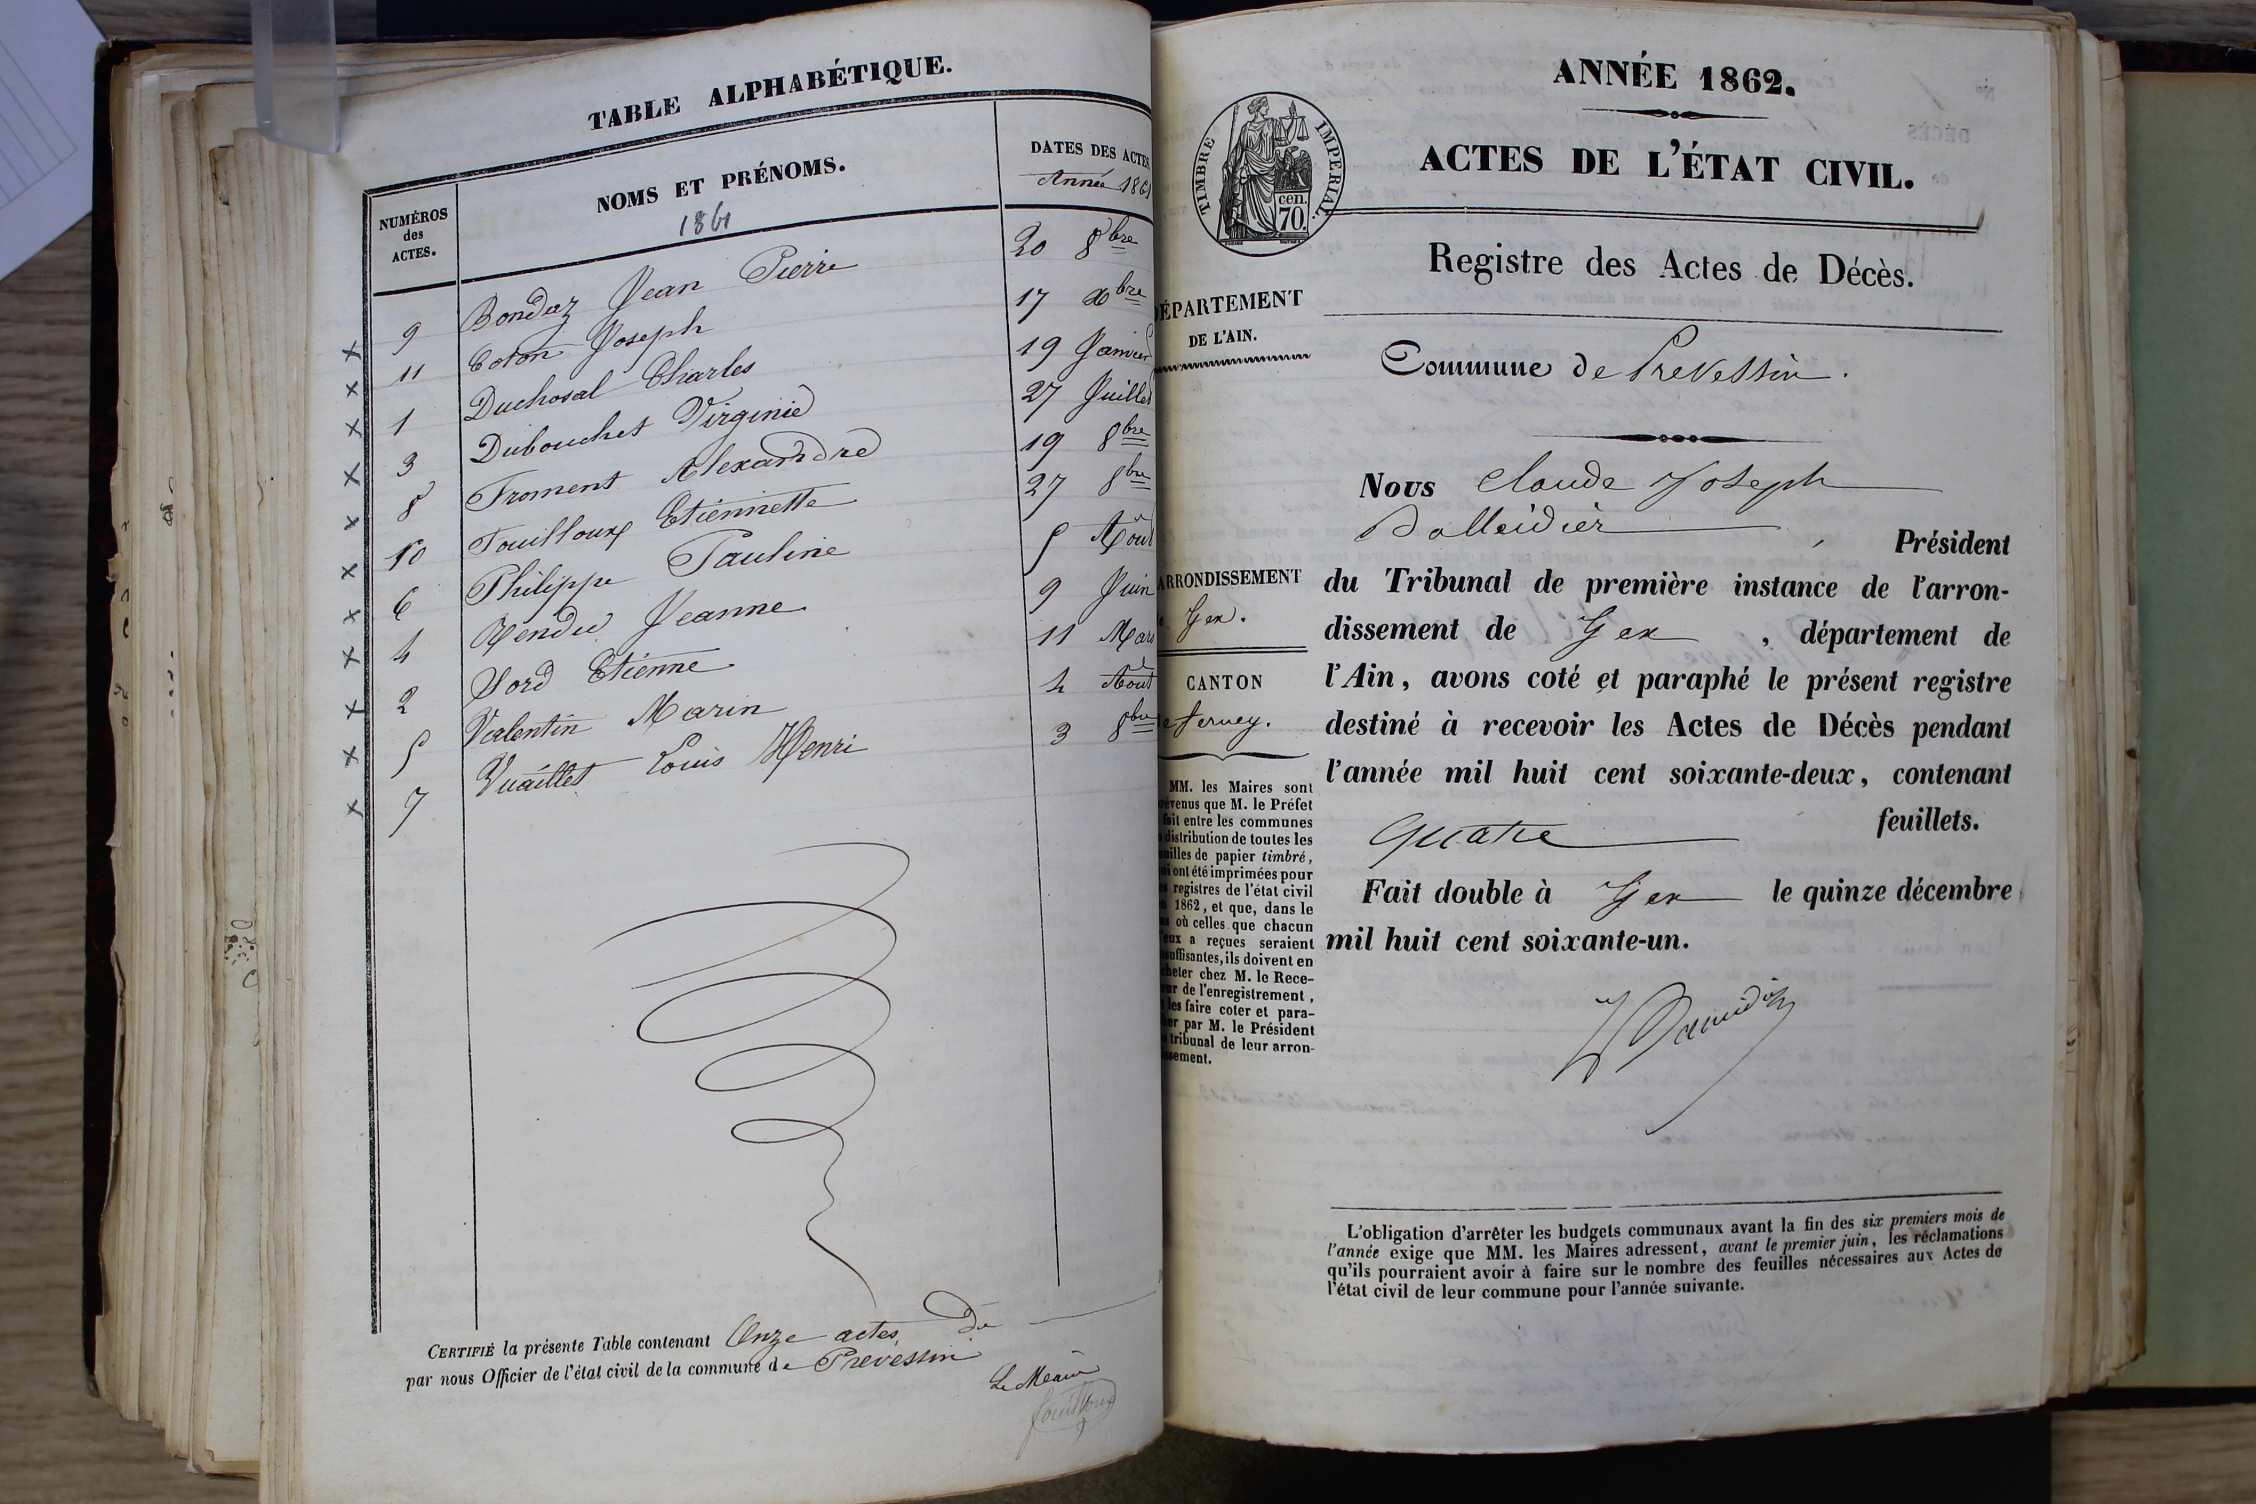 TABLE ALPHABÉTIQUE.
NUMÉROS des ACTES.
NOMS ET PRÉNOMS.
1861
DATES DES ACTES
Année 1861
9 Bondaz Jean Pierre 20 8bre
11 Coton Joseph 17 Xbre
1 Duchosal Charles 19 Janvier
3 Dubouchet Virginie 27 Juillet
8 Froment Alexandre 19 8bre
10 Fouilloux Etiennette 27 8bre
6 Philippe Pauline 5 Août
4 Rendu Jeanne 9 Juin
2 Sord Etienne 11 Mars
5 Valentin Marin 4 Aout
7 Vuaillet Louis Henri 3 8bre
CERTIFIÉ la présente Table contenant Onze actes, De
par nous Officier de l'état civil de la commune de Prevessin
Le Maire
Fouilloux
ANNÉE 1862.
TIMBRE IMPERIAL.
cen.
70.
ACTES DE L'ÉTAT CIVIL.
Registre des Actes de Décès.
DÉPARTEMENT
DE L'AIN.
Commune de Prevessin.
Nous Claude Joseph
, Président
du Tribunal de première instance de l'arron-
dissement de Gex, département de
l'Ain, avons coté et paraphé le présent registre
destiné à recevoir les Actes de Décès pendant
l'année mil huit cent soixante-deux, contenant
quatre feuillets.
Fait double à Gex le quinze décembre
mil huit cent soixante-un.
ARRONDISSEMENT
Gex.
CANTON
Ferney.
MM. les Maires sont
prévenus que M. le Préfet
fait entre les communes
distribution de toutes les
feuilles de papier timbré,
qui ont été imprimées pour
les registres de l'état civil
1862, et que, dans le
cas où celles que chacun
d'eux a reçues seraient
insuffisantes, ils doivent en
acheter chez M. le Rece-
veur de l'enregistrement,
les faire coter et para-
pher par M. le Président
du tribunal de leur arron-
dissement.
L'obligation d'arrêter les budgets communaux avant la fin des six premiers mois de
l'année exige que MM. les Maires adressent, avant le premier juin, les réclamations
qu'ils pourraient avoir à faire sur le nombre des feuilles nécessaires aux Actes de
l'état civil de leur commune pour l'année suivante.